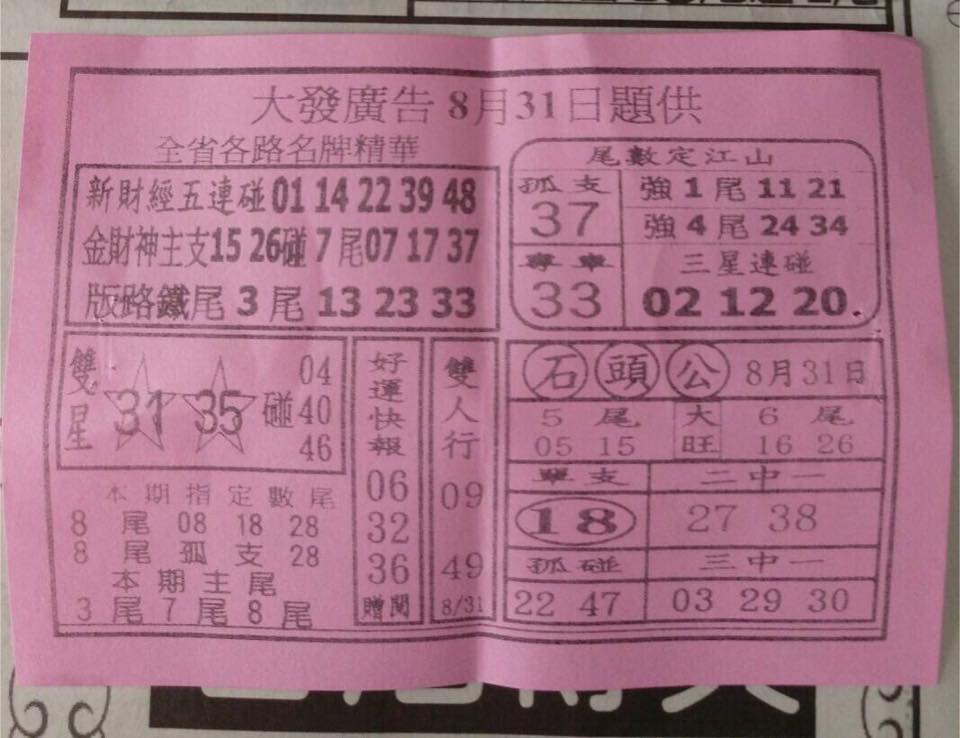 大發廣告 8月31日題供
全省各路名牌精華
新財經五連碰 01 14 22 39 48
金財神主支 15 26 碰 7 尾 07 17 37
版路鐵尾 3 尾 13 23 33
尾數定江山
孤支
37
強 1 尾 11 21
強 4 尾 24 34
專車
33
三星連碰
02 12 20
雙星
31 35 碰
04
40
46
本期指定數尾
8 尾 08 18 28
8 尾 孤支 28
本期主尾
3 尾 7 尾 8 尾
好運快報
06
32
36
贈閱
雙人行
09
49
8/31
石頭公 8月31日
5 尾 大 6 尾
05 15 旺 16 26
單支 二中一
18 27 38
孤碰 三中一
22 47 03 29 30